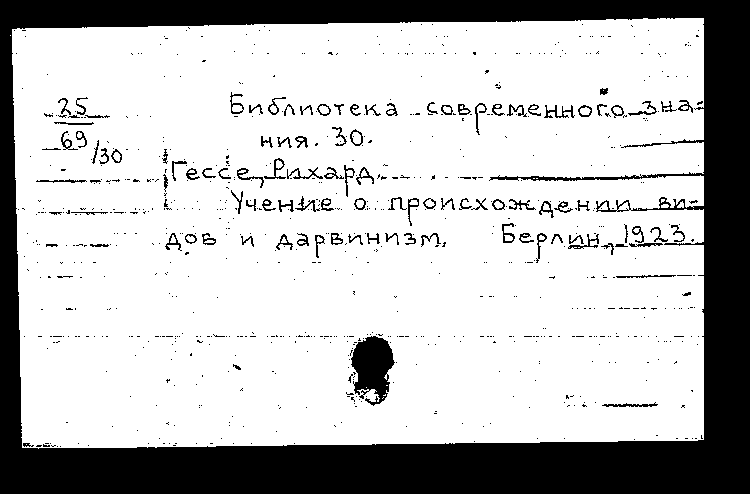 25 Библиотека современного зна-
69/30 ния. 30.
Гессе, Рихард.
Учение о происхождении ви-
дов и дарвинизм. Берлин, 1923.